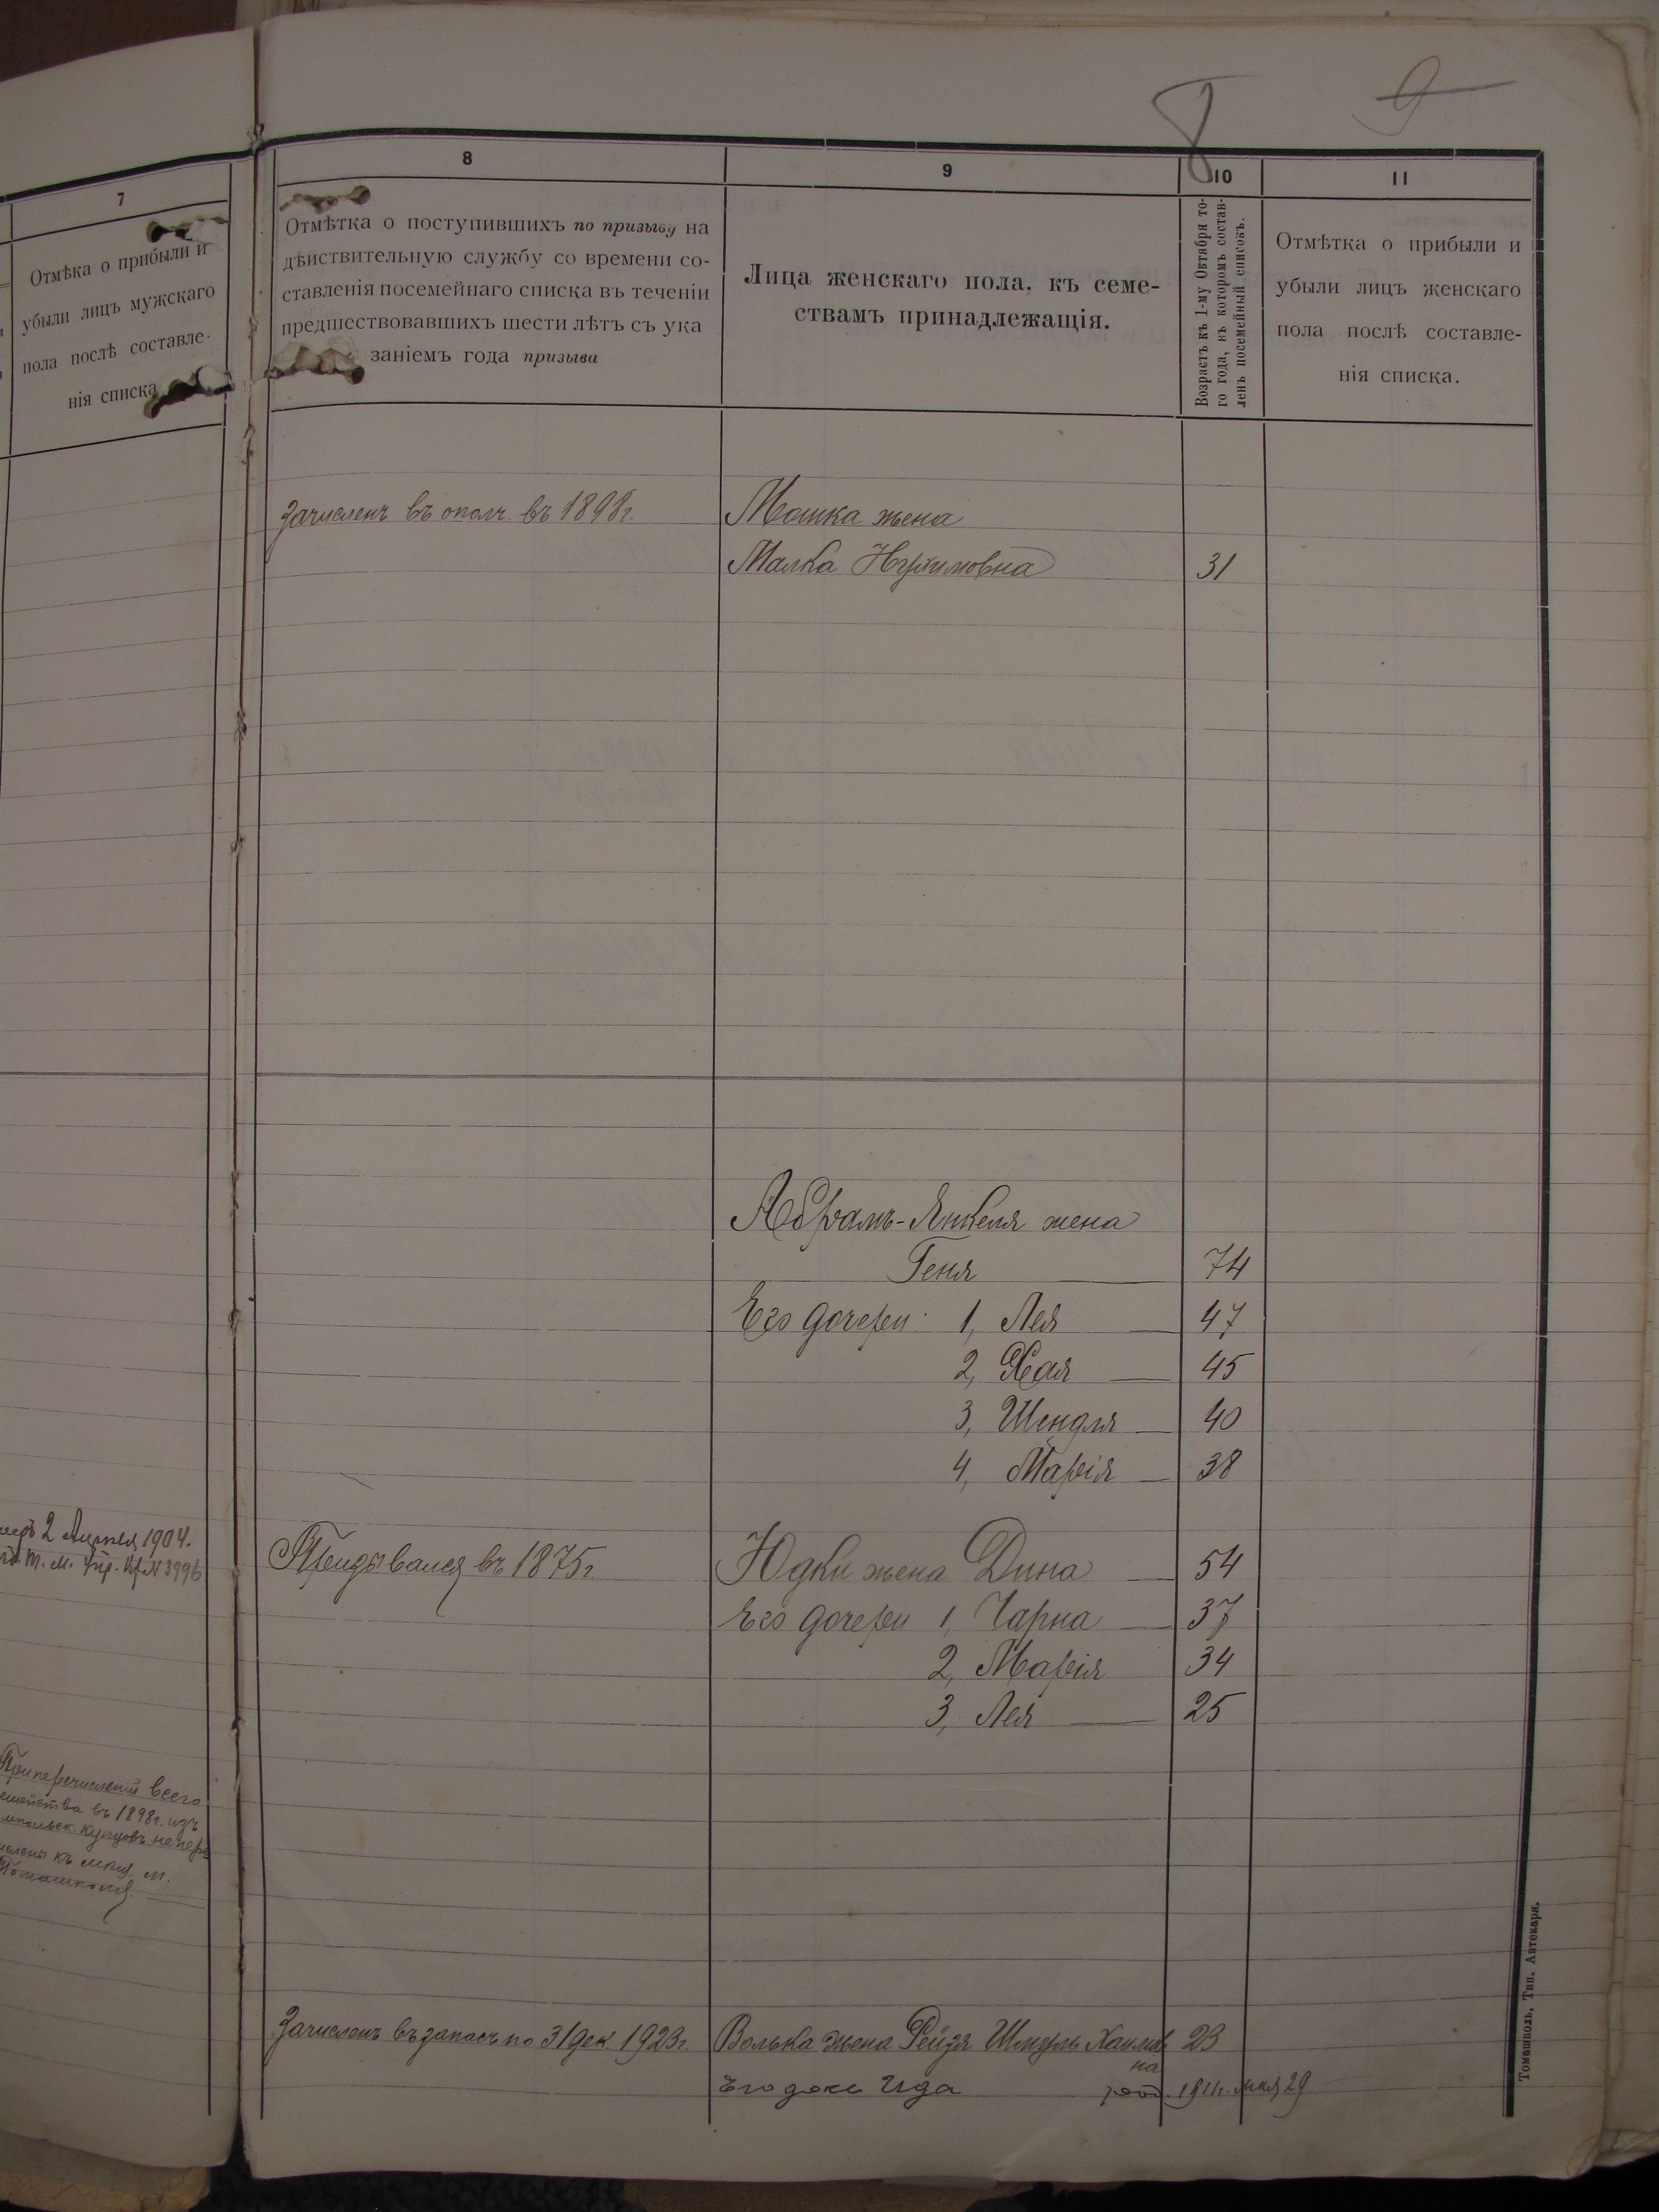 8 9
7
Отмѣка о прибыли и
убыли лицъ мужскаго
пола послѣ составле-
нія списка
2 Апрѣля 1904.
Т. М. Упр. № 3996
Приперечисленіи всего
семейства въ 1898г. изъ
купцовъ не пере
къ мѣщ. м.
8
Отмѣтка о поступившихъ по призыву на
дѣйствительную службу со времени со-
ставленія посемейнаго списка въ теченіи
предшествовавшихъ шести лѣтъ съ ука
заніемъ года призыва
Зачисленъ въ ополч. въ 1898г.
Призывался въ 1875г.
Зачисленъ въ запасъ по 31 дек. 1923г.
9
Лица женскаго пола, къ семе-
ствамъ принадлежащія.
10
Возрастъ къ 1-му Октября то-
го года, въ которомъ состав-
ленъ посемейный списокъ.
11
Отмѣтка о прибыли и
убыли лицъ женскаго
пола послѣ составле-
нія списка.
Мошка жена
Малка 31
Абрамъ-Янкеля жена
Геня 74
Его дочери: 1, Лея 47
2, Хая 45
3, Шендля 40
4, Марія 38
Юдки жена Дина 54
Его дочери 1, Чарна 37
2, Марія 34
3, Лея 25
Волька жена Рейзя Шмуль Хаимов 23
на
Его дочь Ида род. 1911г. мая 29
Томашполь, Тип. Аптекаря.